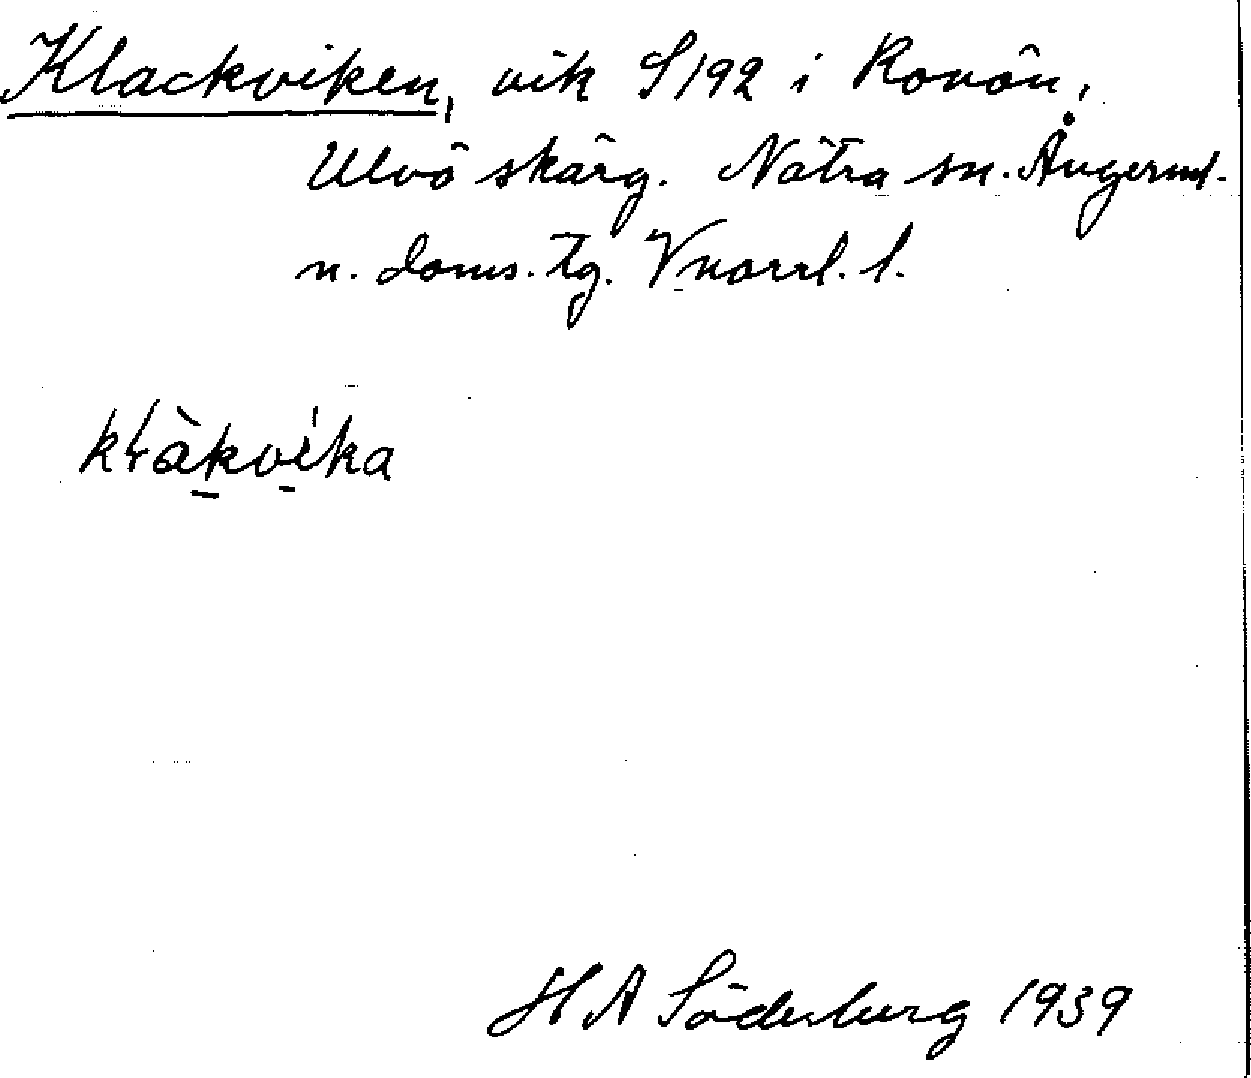 Klackviken, vik S192 i Ronön,
Ulvö skärg. Nätra sn. Ångerml.
n. doms. tg. Vnorrl. l.
klàkvíka
H A Söderberg 1939